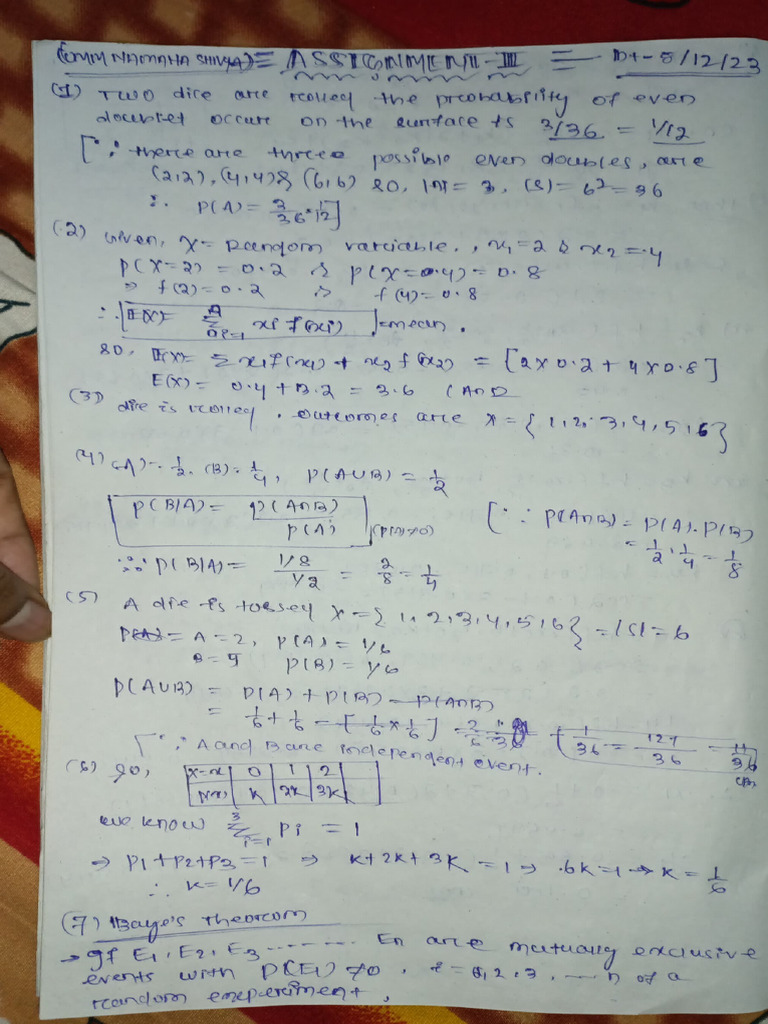 (OMM NAMAHA SHIVAY) = ASSIGNMENT-III = Dt-5/12/23
(1) Two dice are rolled the probability of even
doublet occure on the surface is 3/36 = 1/12
[∵ there are three possible even doubles, are
(2,2), (4,4) & (6,6) so, |n|= 3, (S)= 6² = 36
∴ P(A) = 3/36 = 1/12]
(2) Given, X= Random variable., x₁=2 & x₂=4
P(X=2) = 0.2 & P(X=4) = 0.8
⇒ f(2) = 0.2 & f(4) = 0.8
∴ E(X) = Σ xi f(xi) = mean.
so, E(X) = Σ x₁f(x₁) + x₂f(x₂) = [2×0.2 + 4×0.8]
E(X) = 0.4 + 3.2 = 3.6 (An)
(3) die is rolled. outcomes are X = {1,2,3,4,5,6}
(4) (A) = 1/2, (B) = 1/4, P(AUB) = 1/2
P(B/A) = P(A∩B)/P(A) (P(A)≠0) [∵ P(A∩B) = P(A).P(B)
= 1/2 . 1/4 = 1/8
∴ P(B/A) = (1/8)/(1/2) = 2/8 = 1/4
(5) A die is tossed X = {1,2,3,4,5,6} = |S| = 6
A = 2, P(A) = 1/6
P(B) = 1/6
P(AUB) = P(A) + P(B) - P(A∩B)
= 1/6 + 1/6 - [1/6 × 1/6] = 2/6 - 1/36
[∵ A and B are independent event.
(6) so, 0 1 2
K 2K 3K
we know Σ Pi = 1
⇒ P1+P2+P3 = 1 ⇒ K+2K+3K = 1 ⇒ 6K=1 ⇒ K = 1/6
∴ K = 1/6
(7) Baye's Theorom
→ If E1, E2, E3 ------- En are mutually exclusive
events with P(Ei) ≠0, i = 1,2,3, --- n of a
random experiment,